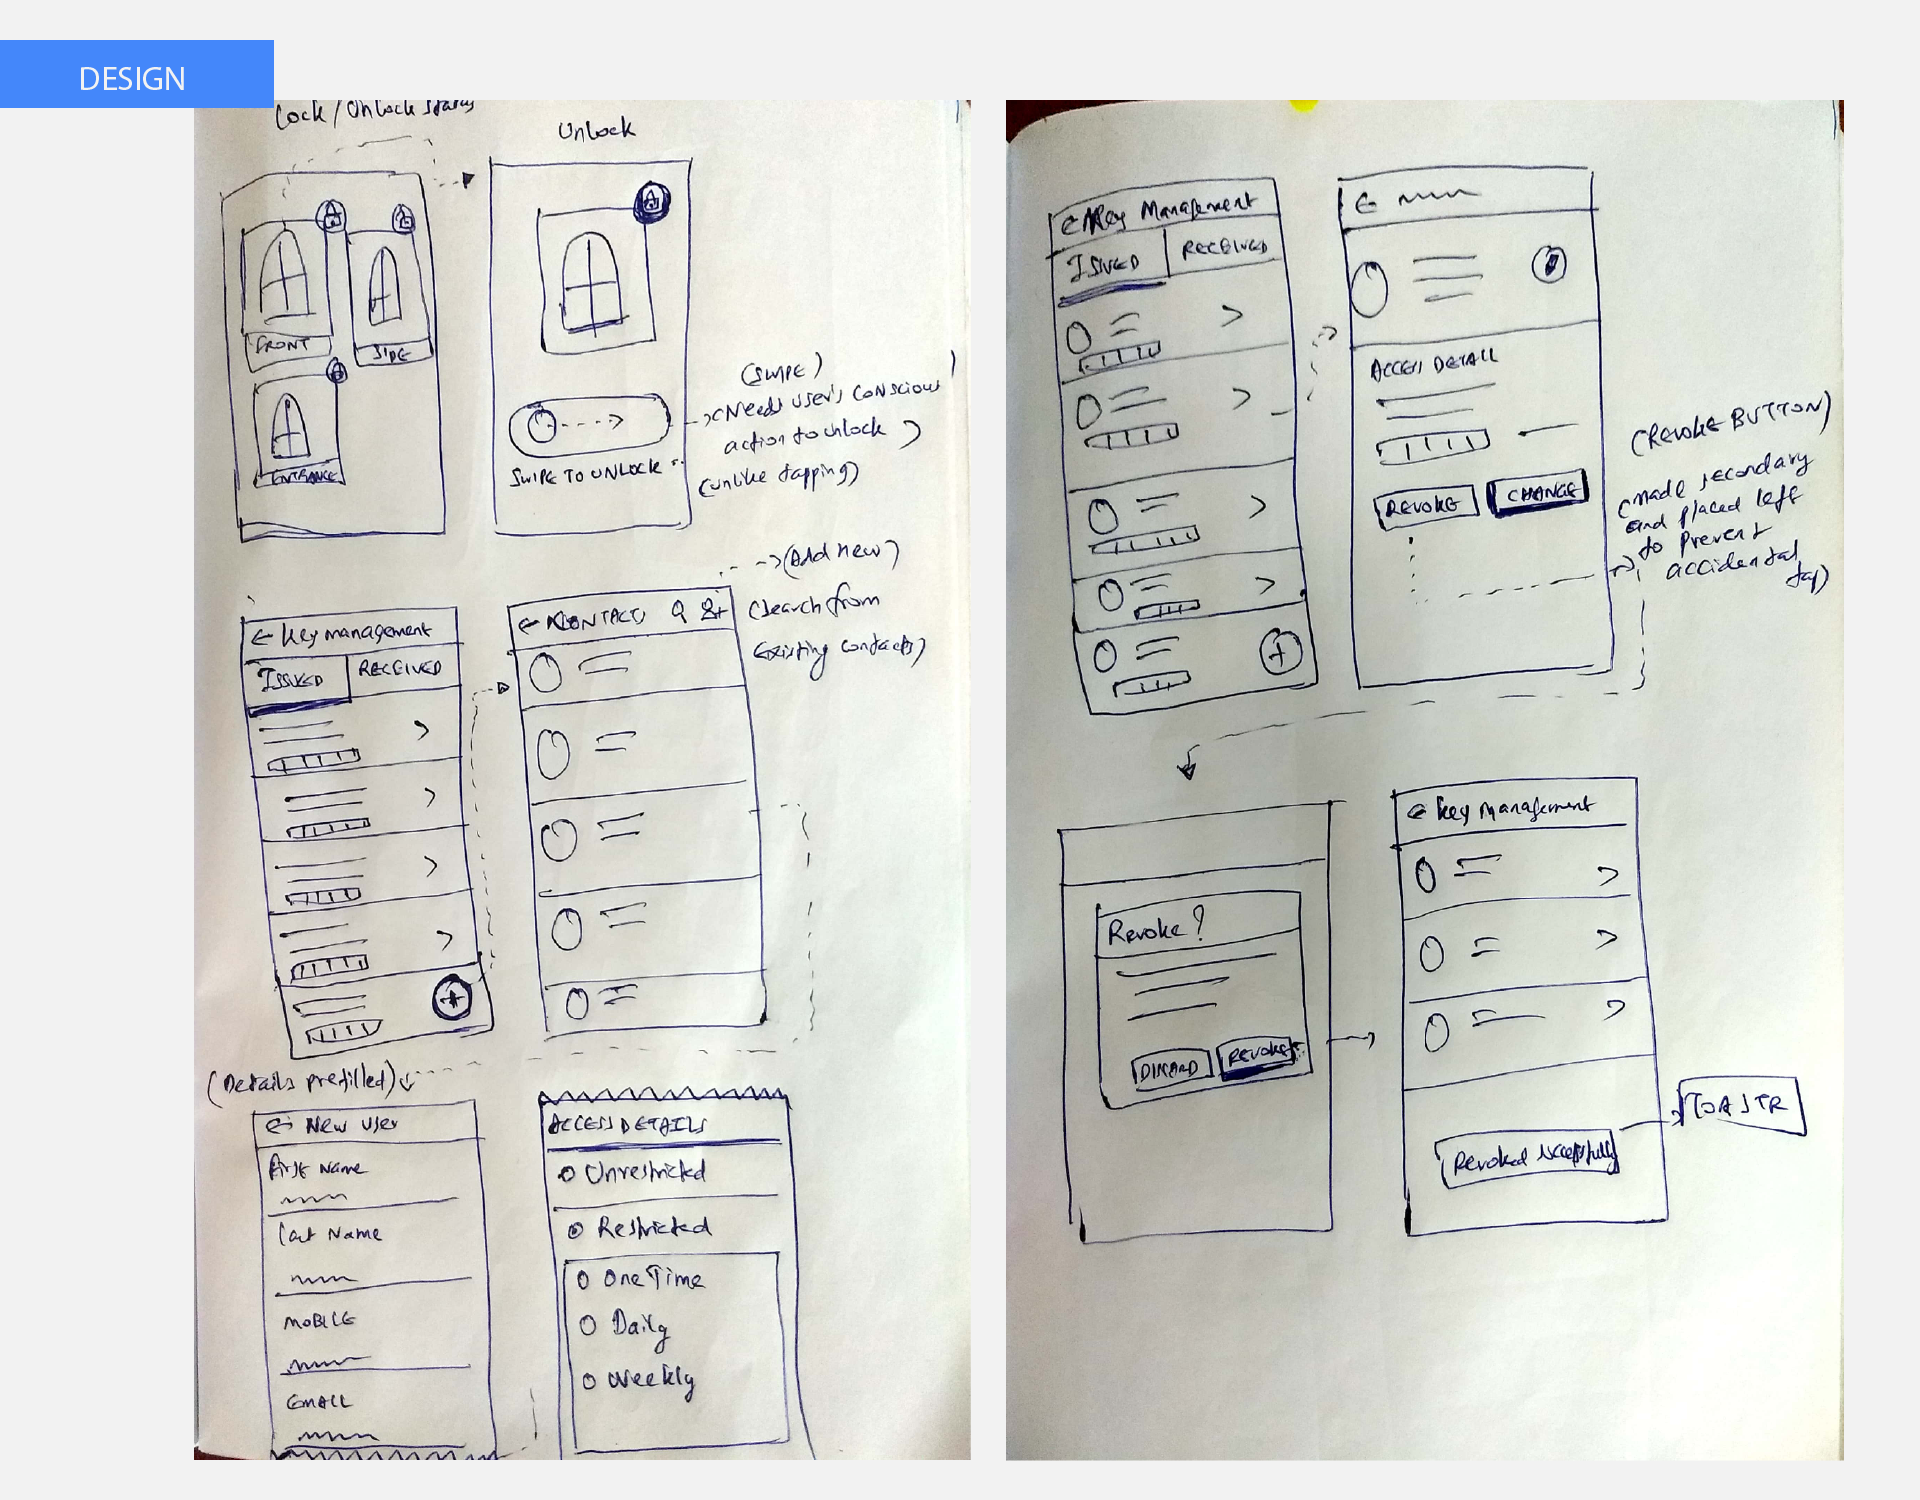 DESIGN
Lock / Unlock Status
Unlock
FRONT
SIDE
ENTRANCE
SWIPE TO UNLOCK
(SWIPE)
(Needs user's conscious
action to unlock)
(unlike tapping)
← Key management
ISSUED
RECEIVED
← CONTACTS
(Add new)
(Search from
Existing contacts)
(Details prefilled)
← New User
First Name
Last Name
MOBILE
EMAIL
ACCESS DETAILS
Unrestricted
Restricted
One Time
Daily
Weekly
← Key Management
ISSUED
RECEIVED
←
ACCESS DETAIL
REVOKE
CHANGE
(REVOKE BUTTON)
(made secondary
and placed left
to prevent
accidental
tap)
Revoke?
REVOKE
← Key Management
Revoked successfully
TOASTR